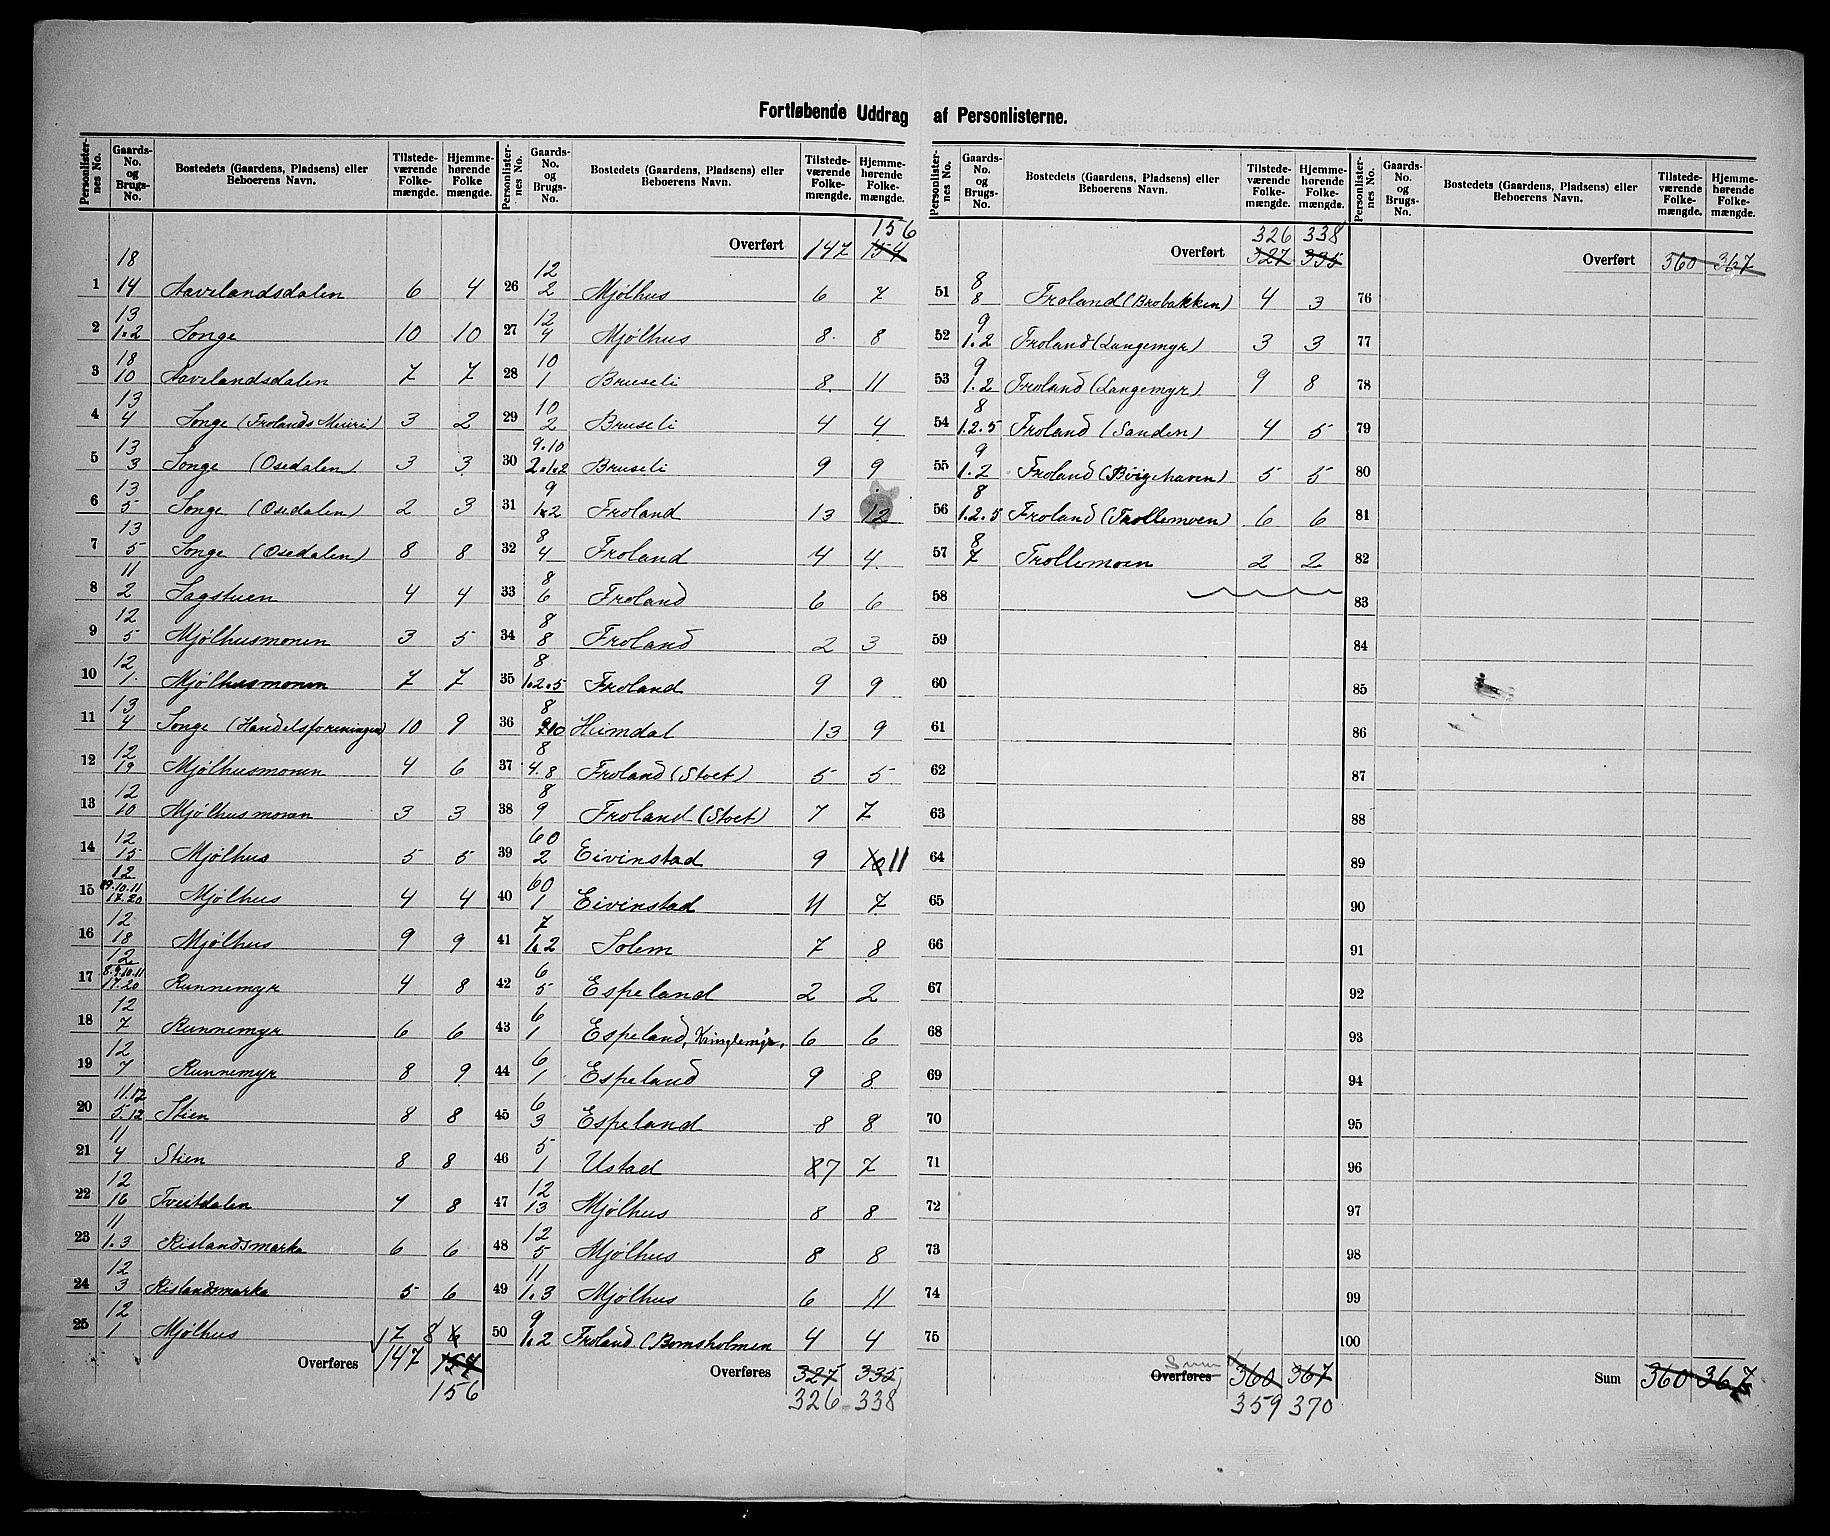 Fortløbende Uddrag af Personlisterne.
Personlister- nes No. | Gaards- No. og Brugs- No. | Bostedets (Gaardens, Pladsens) eller Beboerens Navn. | Tilstede- værende Folke- mængde. | Hjemme- hørende Folke mængde.
1 | 18 14 | Aavelandsdalen | 6 | 4
2 | 13 1.2 | Songe | 10 | 10
3 | 18 10 | Aavelandsdalen | 7 | 7
4 | 13 4 | Songe (Frolands Meieri) | 3 | 2
5 | 13 3 | Songe (Osedalen) | 3 | 3
6 | 13 5 | Songe (Osedalen) | 2 | 3
7 | 13 5 | Songe (Osedalen) | 8 | 8
8 | 11 2 | Sagstuen | 4 | 4
9 | 12 5 | Mjølhusmonen | 3 | 5
10 | 12 1 | Mjølhusmonen | 7 | 7
11 | 13 4 | Songe (Handelsforeningen) | 10 | 9
12 | 12 19 | Mjølhusmonen | 4 | 6
13 | 12 10 | Mjølhusmonen | 3 | 3
14 | 12 15 | Mjølhus | 5 | 5
15 | 12 9.10.11 17.20 | Mjølhus | 4 | 4
16 | 12 18 | Mjølhus | 9 | 9
17 | 12 8.9.10.11 17.20 | Runnemyr | 4 | 8
18 | 12 7 | Runnemyr | 6 | 6
19 | 12 7 | Runnemyr | 8 | 9
20 | 11.12 5.12 | Stien | 8 | 8
21 | 11 4 | Stien | 8 | 8
22 | 12 16 | Tveitdalen | 7 | 8
23 | 11 1.3 | Rislandsmarka | 6 | 6
24 | 12 3 | Rislandsmarka | 5 | 6
25 | 12 1 | Mjølhus | 7 | 8 6
Overføres 147 157
156
Personlister- nes No. | Gaards- No. og Brugs- No. | Bostedets (Gaardens, Pladsens) eller Beboerens Navn. | Tilstede- værende Folke- mængde. | Hjemme- hørende Folke- mængde.
156
Overført 147 154
26 | 12 2 | Mjølhus | 6 | 7
27 | 12 4 | Mjølhus | 8 | 8
28 | 10 1 | Bruseli | 8 | 11
29 | 10 2 | Bruseli | 4 | 4
30 | 9.10 2.1.2 | Bruseli | 9 | 9
31 | 9 1.2 | Froland | 13 | 12
32 | 8 4 | Froland | 4 | 4
33 | 8 6 | Froland | 6 | 6
34 | 8 8 | Froland | 2 | 3
35 | 8 1.2.5 | Froland | 9 | 9
36 | 8 10 | Heimdal | 13 | 9
37 | 8 4.8 | Froland (Stoet) | 5 | 5
38 | 8 9 | Froland (Stoet) | 7 | 7
39 | 60 2 | Eivinstad | 9 | 10 11
40 | 60 1 | Eivinstad | 11 | 7
41 | 7 1.2 | Solem | 7 | 8
42 | 6 5 | Espeland | 2 | 2
43 | 6 1 | Espeland, Kringlemyr. | 6 | 6
44 | 6 1 | Espeland | 9 | 8
45 | 6 3 | Espeland | 8 | 8
46 | 5 1 | Ustad | 8 7 | 7
47 | 12 13 | Mjølhus | 8 | 8
48 | 12 5 | Mjølhus | 8 | 8
49 | 11 1.3 | Mjølhus | 6 | 11
50 | 9 1.2 | Froland (Bomsholmen | 4 | 4
Overføres 327 335
326 338
Personlister- nes No. | Gaards- No. og Brugs- No. | Bostedets (Gaardens, Pladsens) eller Beboerens Navn. | Tilstede- værende Folke- mængde. | Hjemme- hørende Folke- mængde.
326 338
Overført 327 335
51 | 8 8 | Froland (Brobakken) | 4 | 3
52 | 9 1.2 | Froland (Langemyr) | 3 | 3
53 | 9 1.2 | Froland (Langemyr) | 9 | 8
54 | 8 1.2.5 | Froland (Sanden) | 4 | 5
55 | 9 1.2 | Froland (Bøigehaven) | 5 | 5
56 | 8 1.2.5 | Froland (Trollemoen) | 6 | 6
57 | 8 7 | Trollemoen | 2 | 2
58
59
60
61
62
63
64
65
66
67
68
69
70
71
72
73
74
75
Sum
Overføres 360 367
359 370
Personlister- nes No. | Gaards- No. og Brugs- No. | Bostedets (Gaardens, Pladsens) eller Beboerens Navn. | Tilstede- værende Folke- mængde. | Hjemme- hørende Folke- mængde.
Overført 360 367
76
77
78
79
80
81
82
83
84
85
86
87
88
89
90
91
92
93
94
95
96
97
98
99
100
Sum 360 367